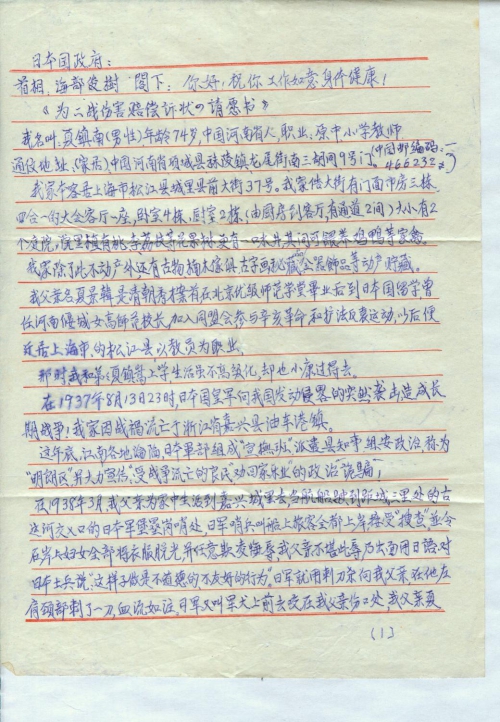 日本国政府：
首相，海部俊樹 閣下：你好，祝你工作如意身体健康！
《为二战伤害赔偿訴状の請愿书》
我名叫：夏镇南（男性）年龄74岁，中国河南省人，职业：原中小学教师
通役地址：（家居）中国河南省项城县秣陵镇龙尾街南三胡同9号门。（中国邮编码：466232）
我家本客居上海市松江县城里县前大街37号。我家传大街有门面市房三栋
四合一的大会客厅一座，卧室4栋，厨室2栋（由厨房到客厅有通道2间）大小有2
个庭院，院里植有桃李荔枝等花果树，更有一口水井其间可跟养鸡鸭等家禽。
我家除了此不动产外还有古物楠木傢俱古字画和藏金器饰品等动产贮藏。
我父亲名夏景韓是清朝秀才案首在北京优级师范学堂畢业后到日本国留学曾
任河南偃城女高师范校长，加入同盟会参与辛亥革命和护法反袁运动，以后便
迁居上海市的松江县以教员为职业，
那时我和弟夏镇嵩上学，生活虽不高築化，却也小康过得去。
在1937年8月13日23时，日本国皇军向我国发动侵畧的突然袭击造成长
期战争；我家因战祸流亡于浙江省嘉兴县油车港镇。
这年底，江南各地沦陷日本军部组成“宣撫班”派設县知事，组安政治，称为
“明朗区”并大力宣传，受战争流亡的官民“动回家乐业”的政治誘騙；
在1938年3月，我父亲为家中生活到嘉兴城里去当航船駛到距城三里处的古
运河交叉口的日本軍盟裴肖哨处，日军哨兵叫船上旅客全都上岸接受“搜查”並令
在岸上妇女全部将衣服脱光并任意欺凌侮辱，我父亲不堪此辱乃出面用日語对
日本士兵說“这样子做是不道德的不友好的行为”。日军就用刺刀条向我父亲在他左
肩颈部刺了一刀，血流如注，日军又叫军犬上前去咬在我父亲伤口处，我父亲夏
（1）